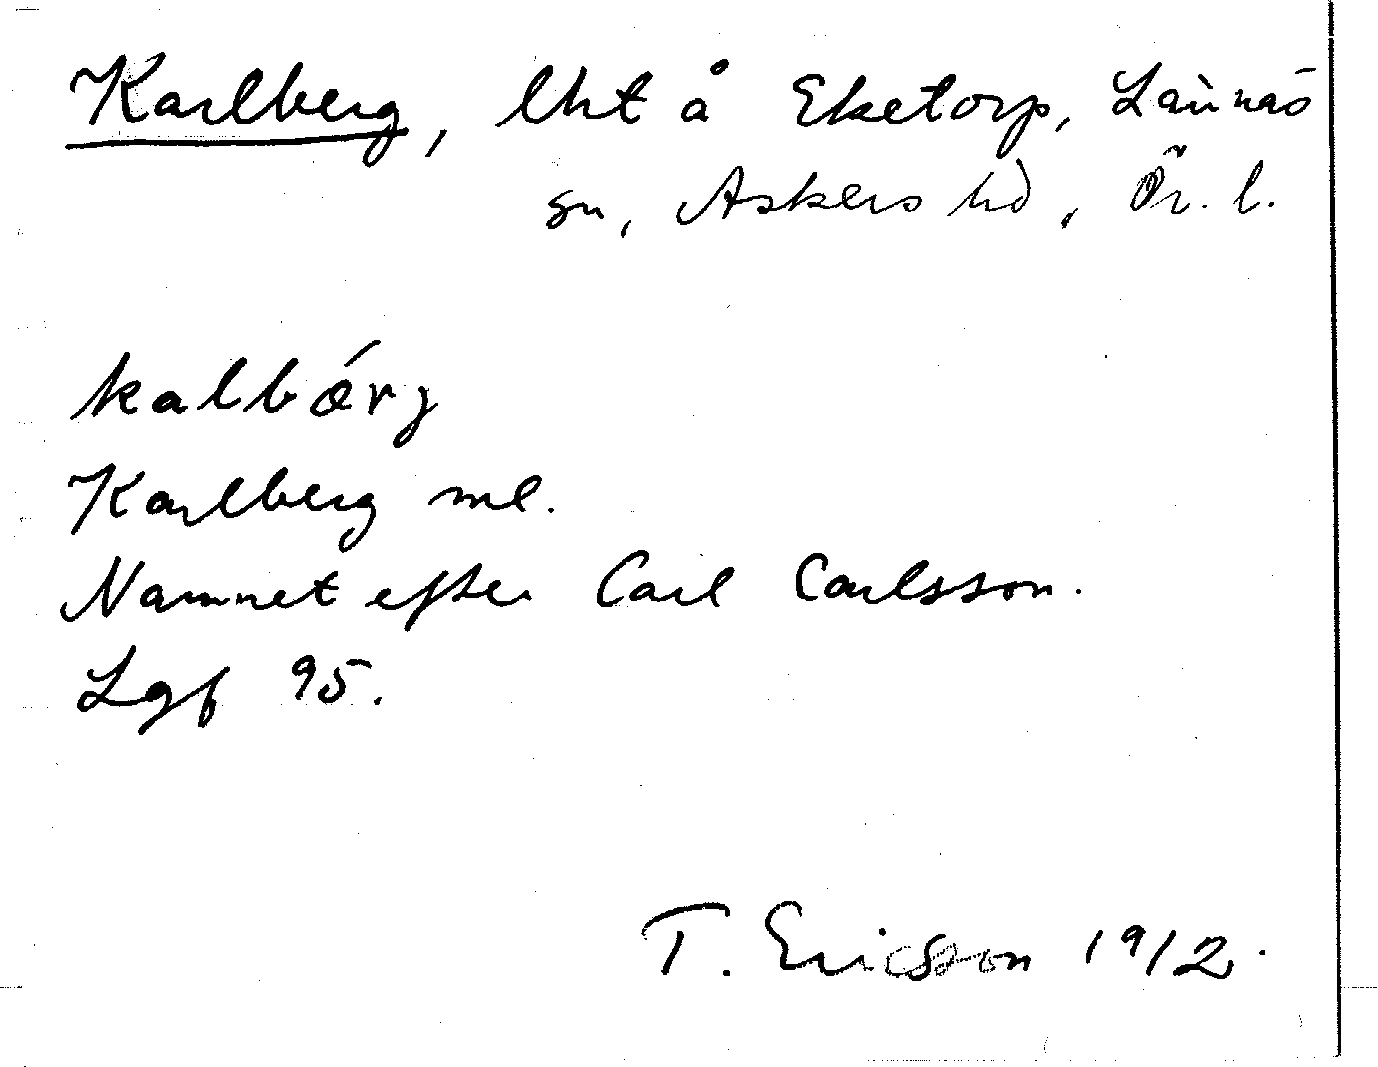 Karlberg, lht å Eketorp, Lännäs
sn, Askers hd, Ör. l.
kalbǽrj
Karlberg ml.
Namnet efter Carl Carlsson.
Lgf 95.
T. Ericsson 1912.